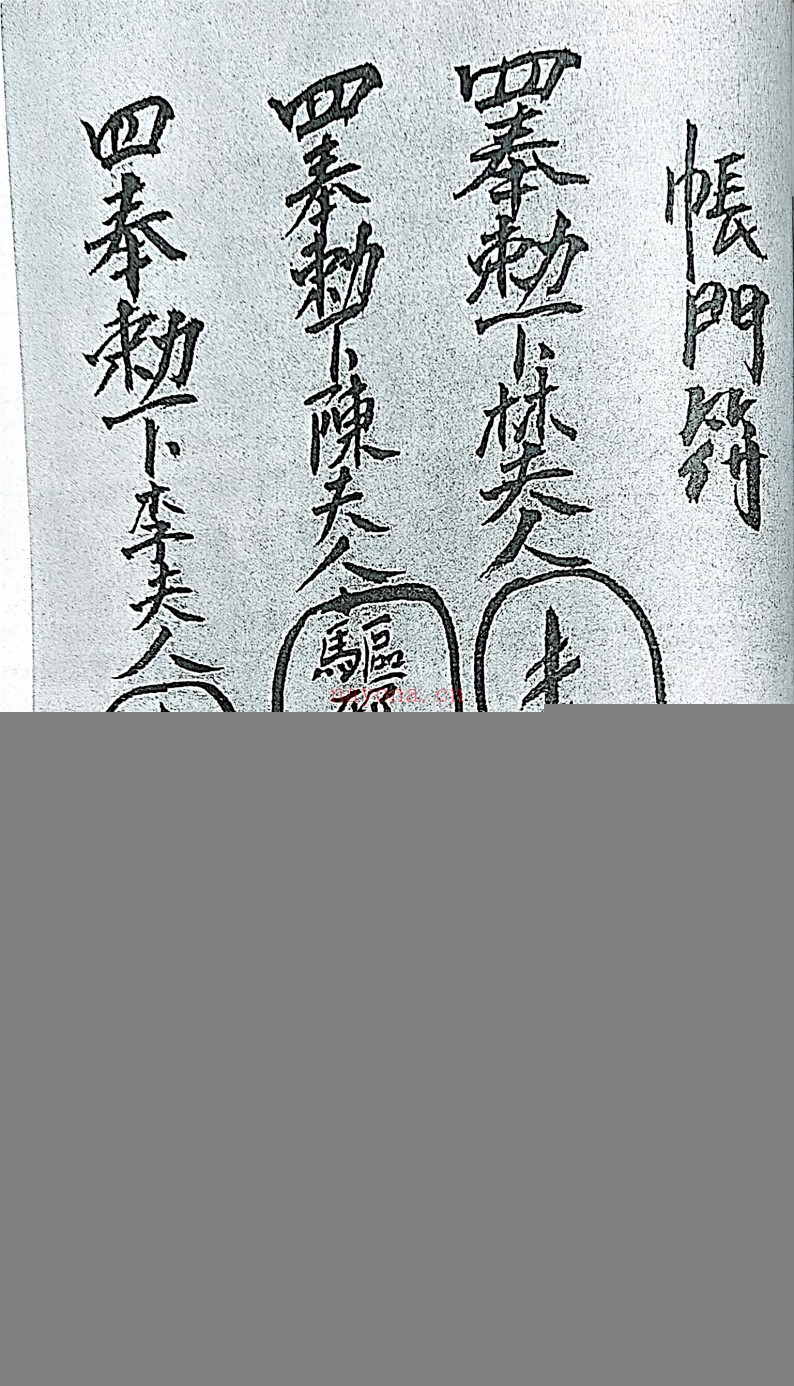 帳門符
四奉勅下林夫人
四奉勅下陳夫人
驅
四奉勅下李夫人